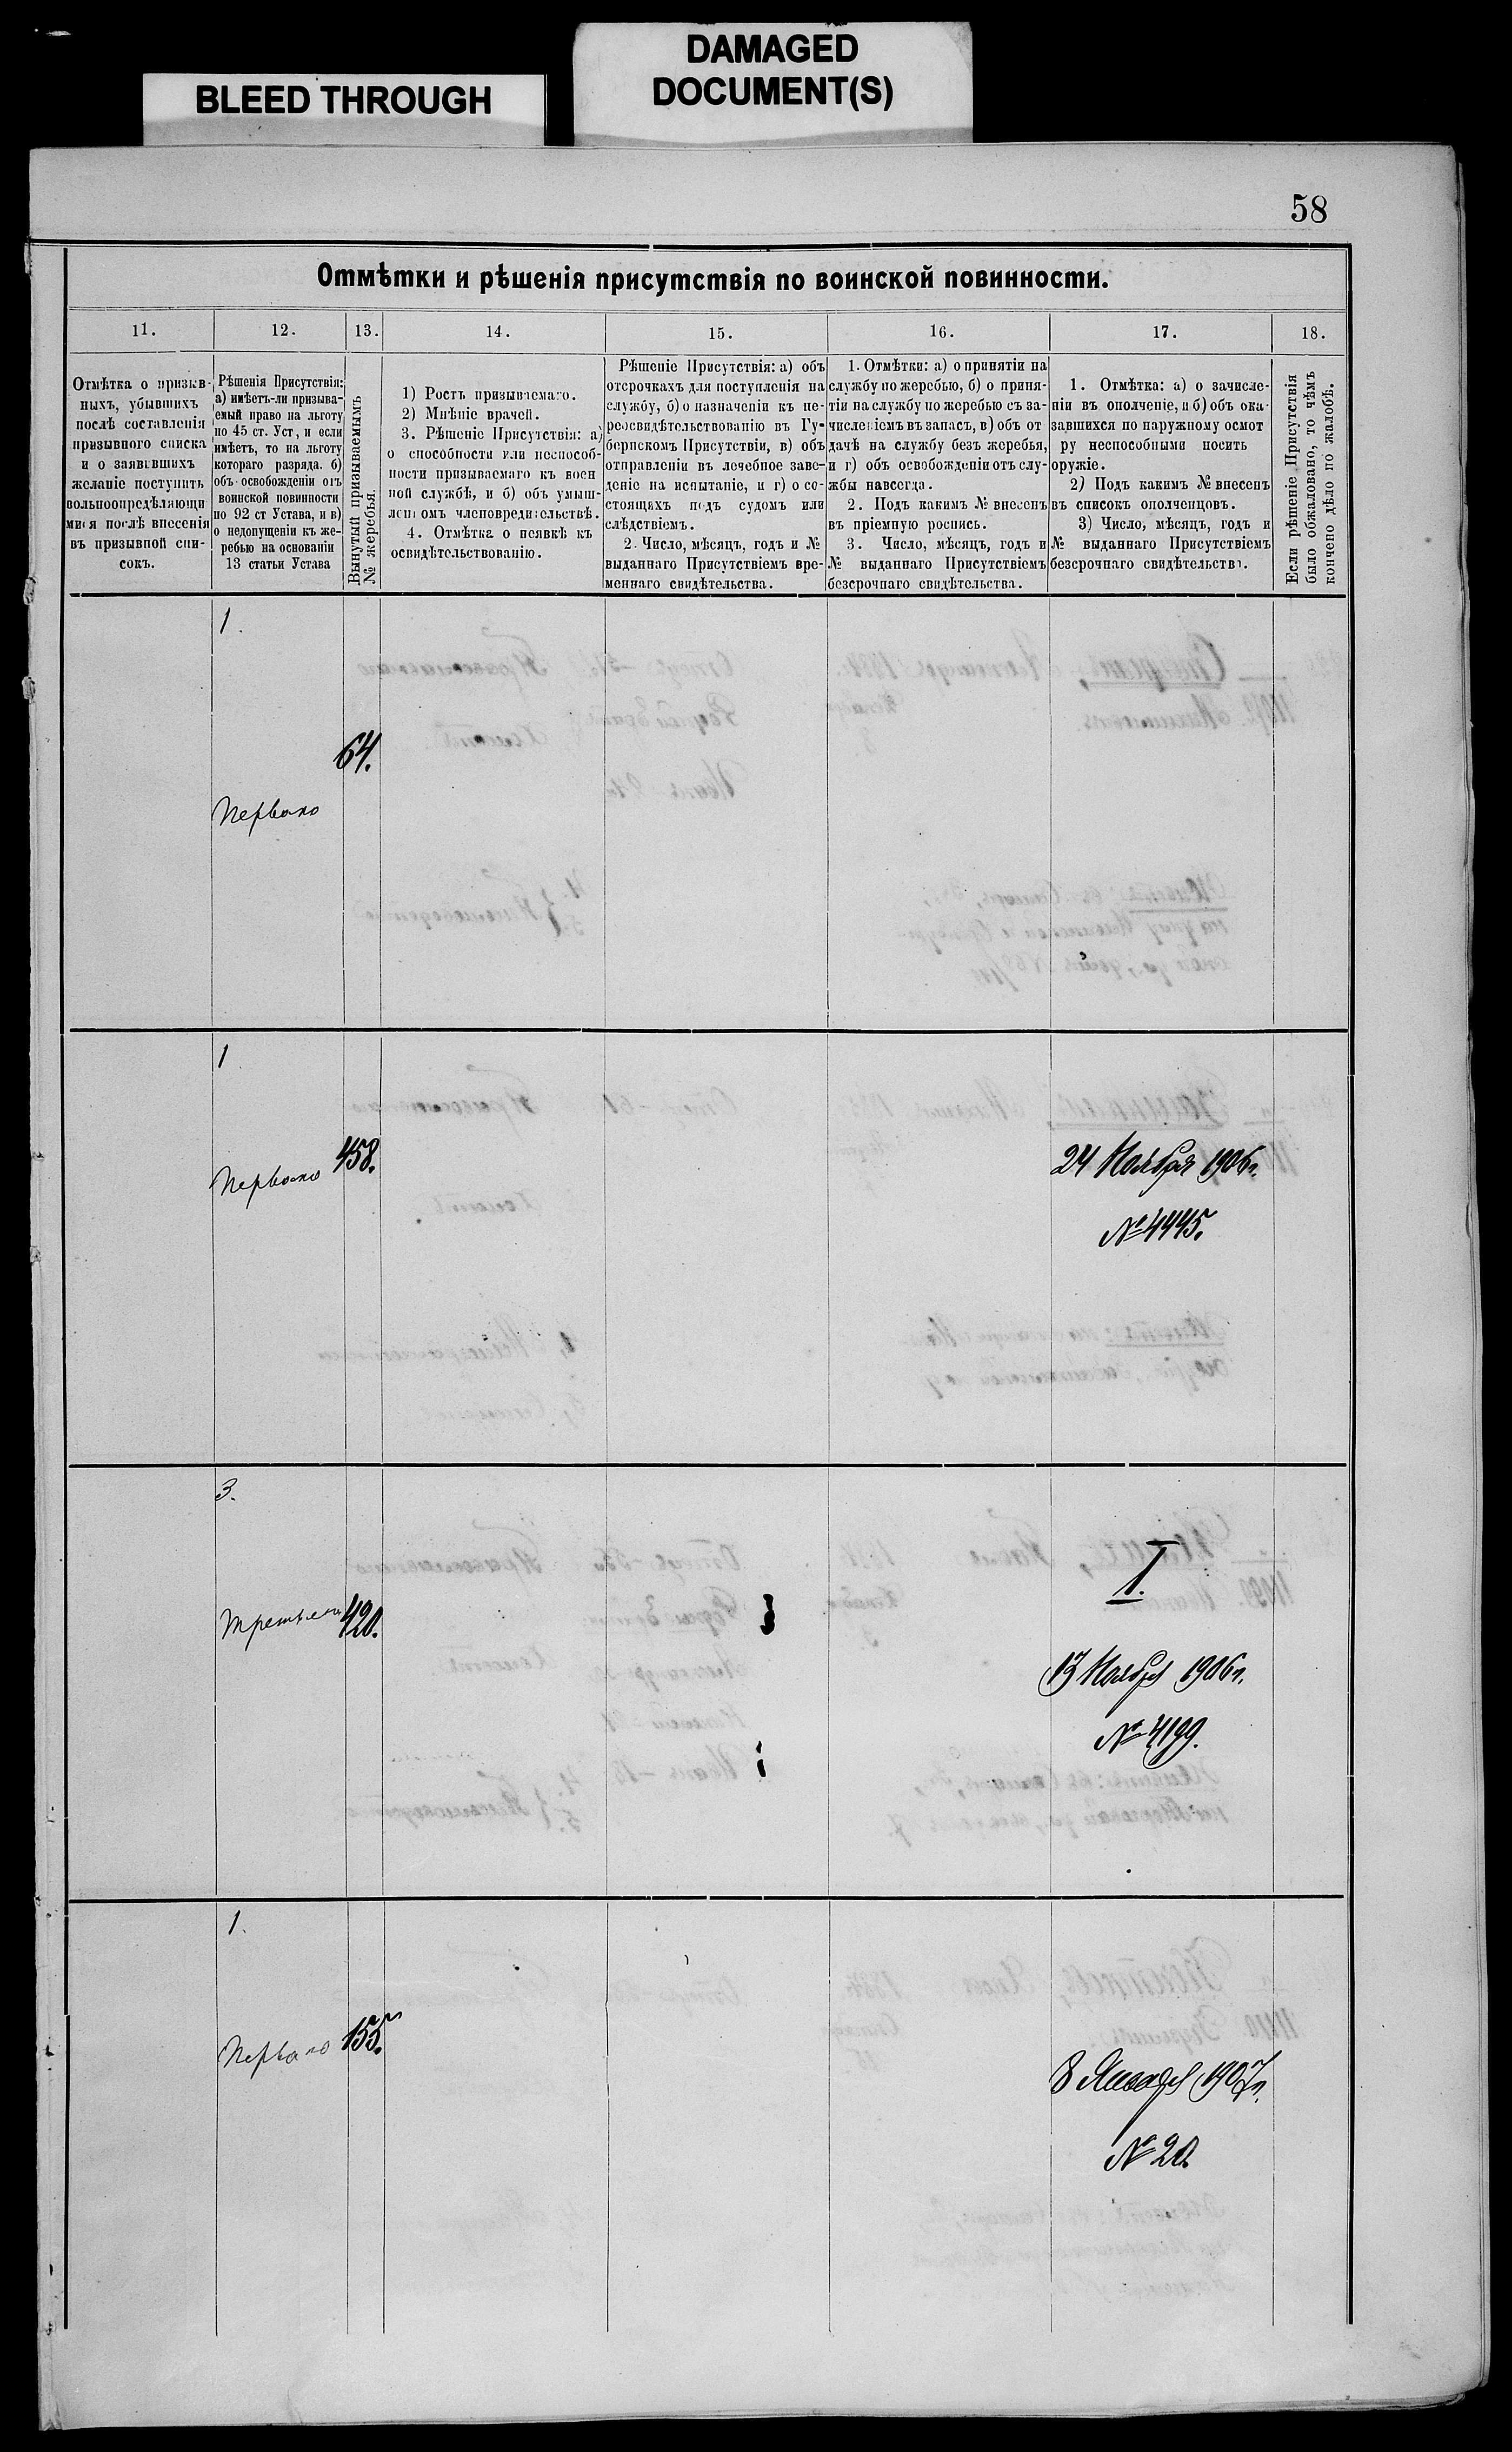 BLEED THROUGH
DAMAGED
DOCUMENT(S)
58
Отмѣтки и рѣшенія присутствія по воинской повинности.
11.
12.
13.
14.
15.
16.
17.
18.
Отмѣтка о призыв-
ныхъ, убывшихъ
послѣ составленія
призывного списка
и о заявившихъ
желаніе поступить
вольноопредѣляющи
мися послѣ внесенія
въ призывной спи-
сокъ.
Рѣшенія Присутствія:
а) имѣетъ-ли призыва-
емый право на льготу
по 45 ст. Уст, и если
имѣетъ, то на льготу
котораго разряда. б)
объ освобожденіи отъ
воинской повинности
по 92 ст Устава, и в)
о недопущеніи къ же-
ребью на основаніи
13 статьи Устава
Вынутый призываемымъ
№ жеребья.
1) Ростъ призываемаго.
2) Мнѣніе врачей.
3. Рѣшеніе Присутствія: а)
о способности или неспособ-
ности призываемаго къ воен
ной службѣ, и б) объ умыш-
ленномъ членовредительствѣ.
4. Отмѣтка о неявкѣ къ
освидѣтельствованію.
Рѣшеніе Присутствія: а) объ
отсрочкахъ для поступленія на
службу, б) о назначеніи къ пе-
реосвидѣтельствованію въ Гу-
бернскомъ Присутствіи, в) объ
отправленіи въ лечебное заве-
деніе на испытаніе, и г) о со-
стоящихъ подъ судомъ или
слѣдствіемъ.
2. Число, мѣсяцъ, годъ и №
выданнаго Присутствіемъ вре-
меннаго свидѣтельства.
1. Отмѣтки: а) о принятіи на
службу по жеребью, б) о приня-
тіи на службу по жеребью съ за-
численіемъ въ запасъ, в) объ от
дачѣ на службу безъ жеребья,
и г) объ освобожденіи отъ слу-
жбы навсегда.
2. Подъ какимъ № внесенъ
въ пріемную роспись.
3. Число, мѣсяцъ, годъ и
№ выданнаго Присутствіемъ
безсрочнаго свидѣтельства.
1. Отмѣтка: а) о зачисле-
ніи въ ополченіе, и б) объ ока-
завшихся по наружному осмот
ру неспособными носить
оружіе.
2) Подъ какимъ № внесенъ
въ списокъ ополченцовъ.
3) Число, мѣсяцъ, годъ и
№ выданнаго Присутствіемъ
безсрочнаго свидѣтельства.
Если рѣшеніе Присутствія
было обжаловано, то чѣмъ
кончено дѣло по жалобѣ.
1.
64.
Первого
1
Первого
458.
24 Ноября 1906г.
№ 4445.
3.
Третьего
420.
I.
17 Ноября 1906г.
№ 4199.
1.
Первого
155.
8 Января 1907г.
№ 20.